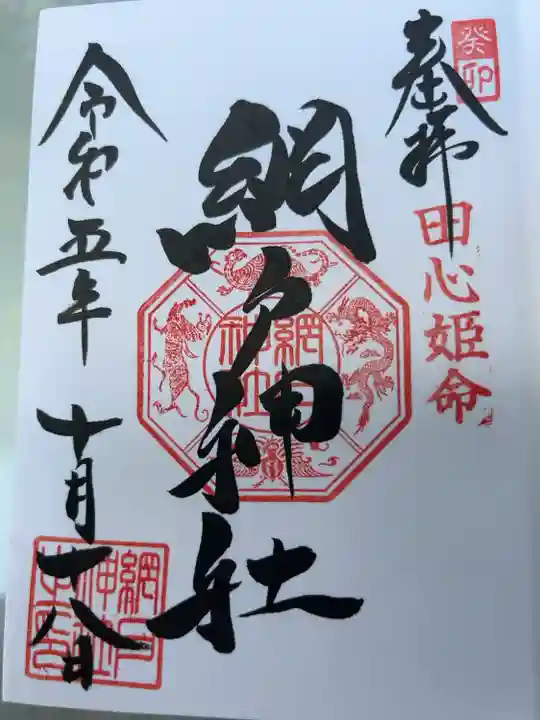 癸卯
奉拝
田心姫命
網戸神社
網戸神社
令和五年十月十八日